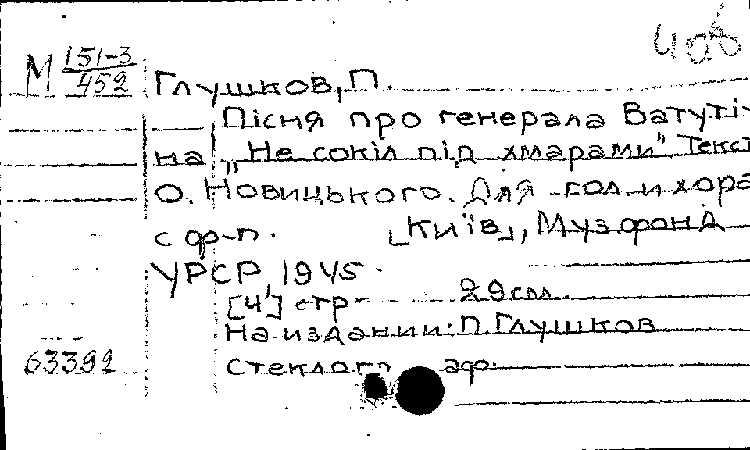 406
М 151-3
452
Глушков, П.
Пісня про генерала Ватуті-
на „Не сокіл під хмарами" Текст
О. Новицького. Для гол. и хора
с ф-п. [Київ], Муз.фонд
УРСР, 1945.
[4] стр.
На издании: П. Глушков
63392